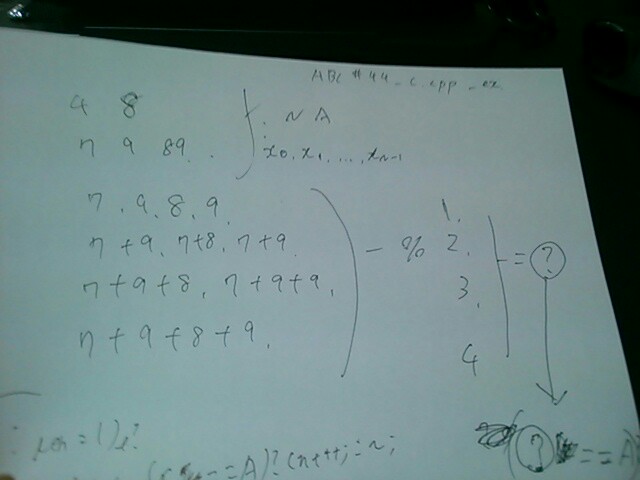 ABC #44_c.cpp_ex
4 8
7 9 8 9 .
} . N A
x0, x1, ..., xN-1
7, 9, 8, 9,
7+9, 7+8, 7+9,
7+9+8, 7+9+9,
7+9+8+9,
- % 1, 2, 3, 4 = ?
? == A
== A)? (n++; : n;